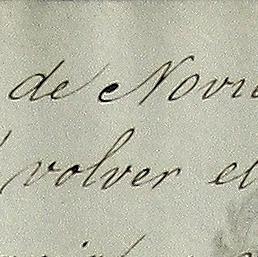 de Novi
volver el